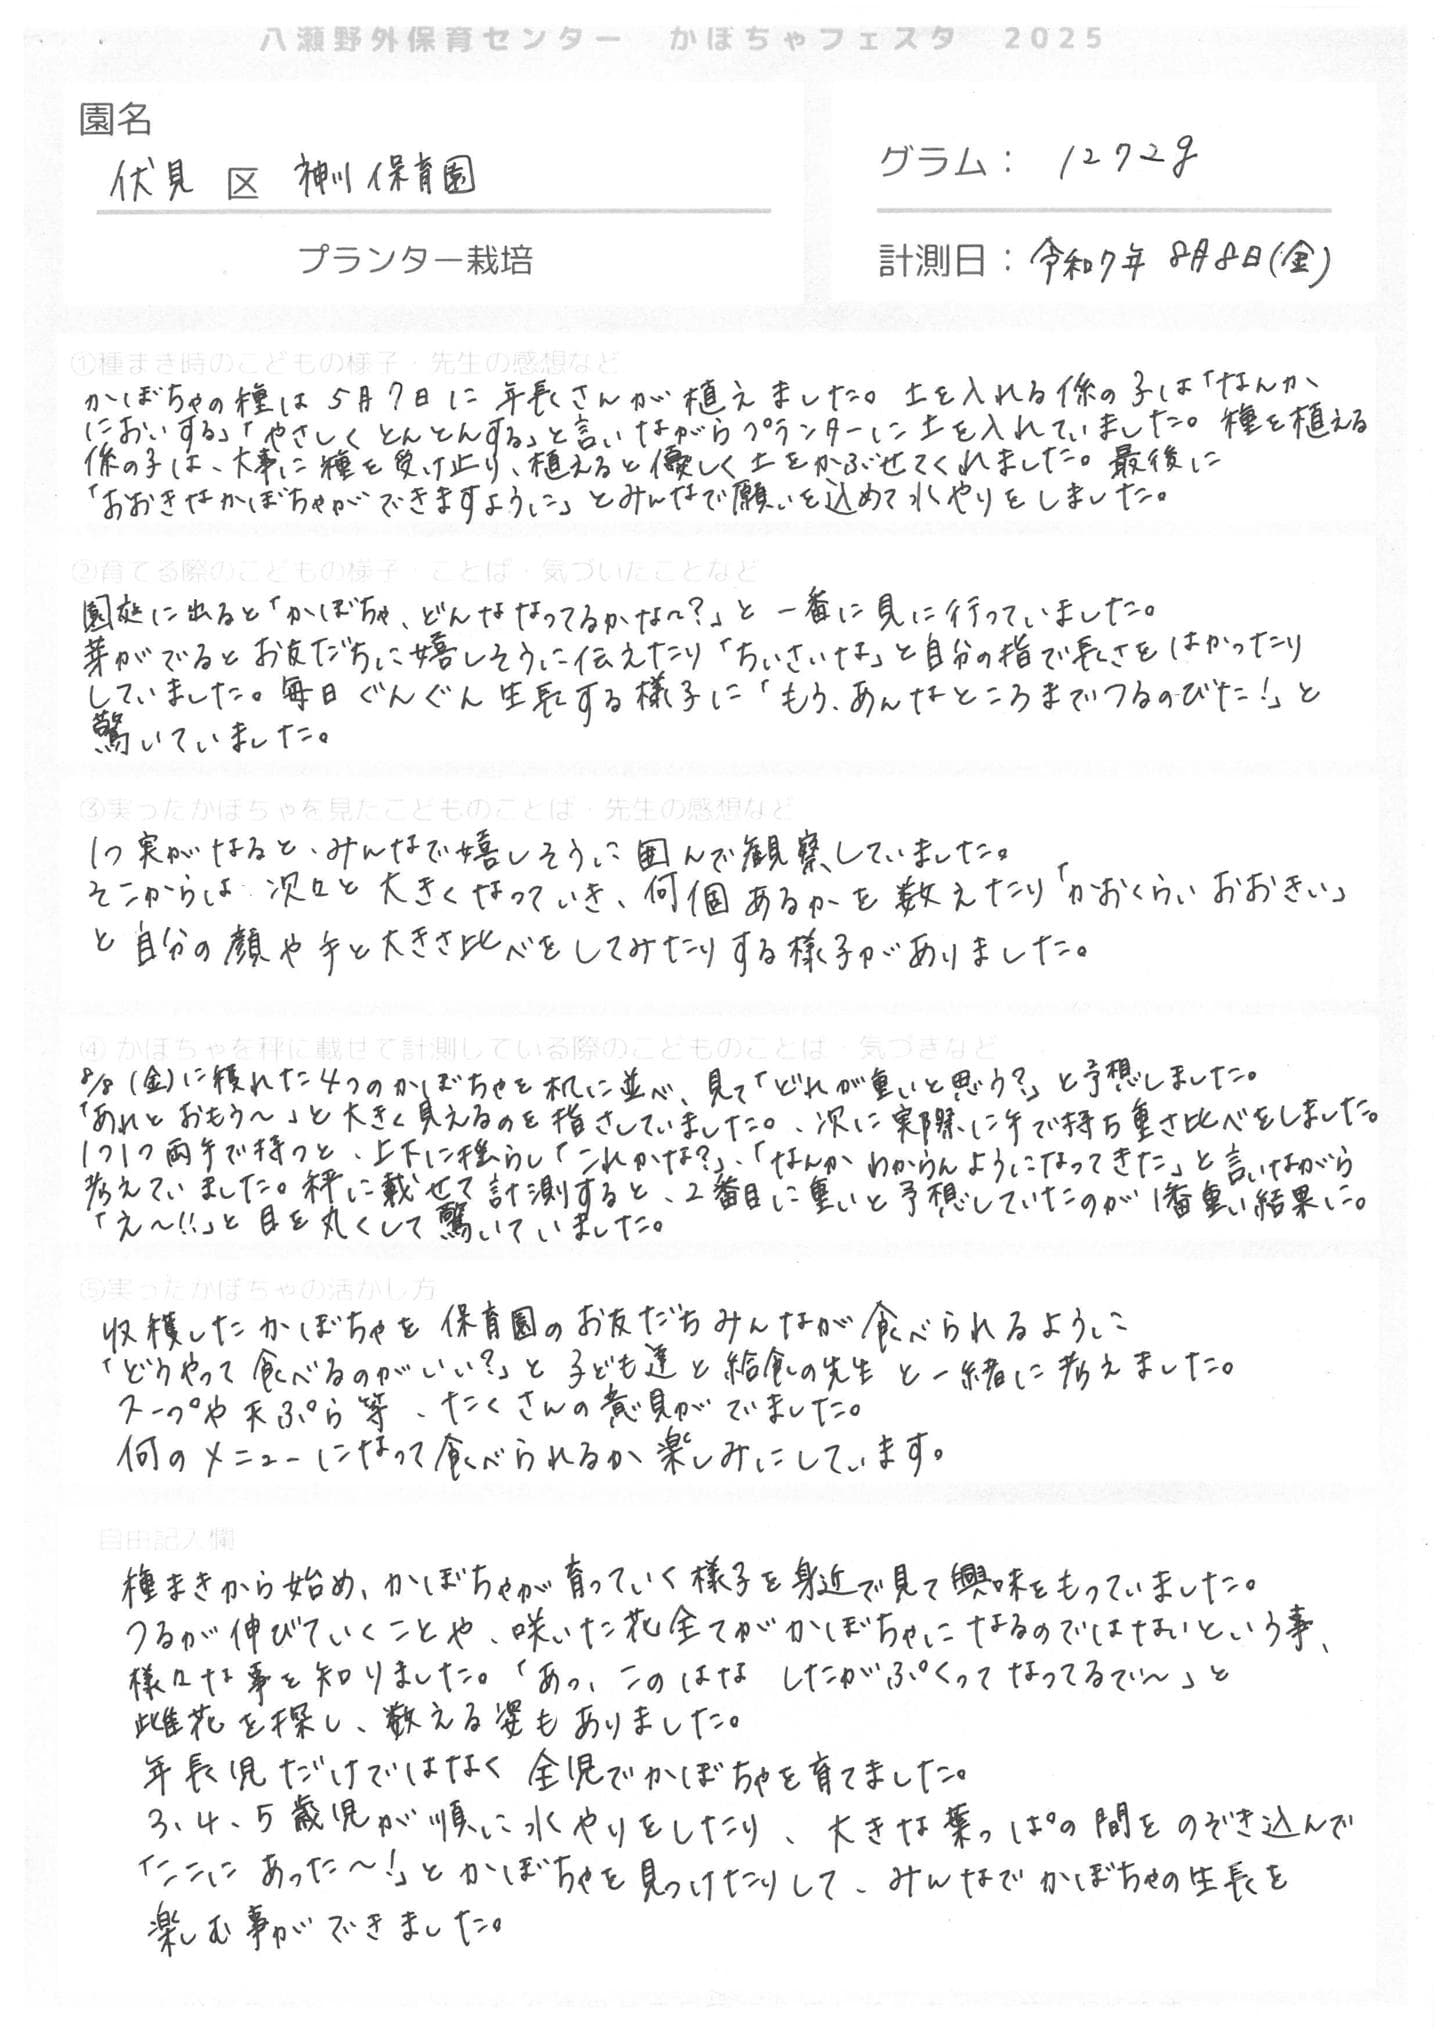 八瀬野外保育センター　かぼちゃフェスタ　2025
園名
伏見 区 神川保育園
グラム： 1272g
プランター栽培
計測日：令和7年 8月8日(金)
①種まき時のこどもの様子・先生の感想など
かぼちゃの種は5月7日に年長さんが植えました。土を入れる係の子は「なんか
においする」「やさしくとんとんする」と言いながらプランターに土を入れていました。種を植える
係の子は、大事に種を受け止り、植えると優しく土をかぶせてくれました。最後に
「おおきなかぼちゃができますように」とみんなで願いを込めて水やりをしました。
②育てる際のこどもの様子・ことば・気づいたことなど
園庭に出ると「かぼちゃ、どんななってるかな〜?」と一番に見に行っていました。
芽がでるとお友だちに嬉しそうに伝えたり「ちいさいな」と自分の指で長さをはかったり
していました。毎日ぐんぐん生長する様子に「もう、あんなところまでつるのびた!」と
驚いていました。
③実ったかぼちゃを見たこどものことば・先生の感想など
1つ実がなると、みんなで嬉しそうに囲んで観察していました。
そこからは次々と大きくなっていき、何個あるかを数えたり「かおくらいおおきい」
と自分の顔や手と大きさ比べをしてみたりする様子がありました。
④かぼちゃを秤に載せて計測している際のこどものことば・気づきなど
8/8(金)に穫れた4つのかぼちゃを机に並べ、見て「どれが重いと思う?」と予想しました。
「あれとおもう〜」と大きく見えるのを指さしていました。、次に実際に手で持ち重さ比べをしました。
1つ1つ両手で持つと、上下に揺らし「これかな?」、「なんかわからんようになってきた」と言いながら
考えていました。秤に載せて計測すると、2番目に重いと予想していたのが1番重い結果に。
「え〜!!」と目を丸くして驚いていました。
⑤実ったかぼちゃの活かし方
収穫したかぼちゃを保育園のお友だちみんなが食べられるように
「どうやって食べるのがいい?」と子ども達と給食の先生と一緒に考えました。
スープや天ぷら等、たくさんの意見がでました。
何のメニューになって食べられるか楽しみにしています。
自由記入欄
種まきから始め、かぼちゃが育っていく様子を身近で見て興味をもっていました。
つるが伸びていくことや、咲いた花全てがかぼちゃになるのではないという事、
様々な事を知りました。「あっ、このはな したがぷくってなってるで〜」と
雌花を探し、数える姿もありました。
年長児だけではなく全児でかぼちゃを育てました。
3、4、5歳児が順に水やりをしたり、大きな葉っぱの間をのぞき込んで
「ここにあった〜!」とかぼちゃを見つけたりして、みんなでかぼちゃの生長を
楽しむ事ができました。